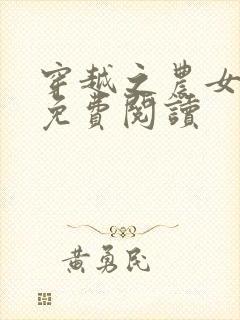 穿越之農女
免費閱讀
黃勇民